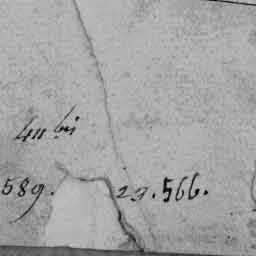 411 bis
589. 29.566.